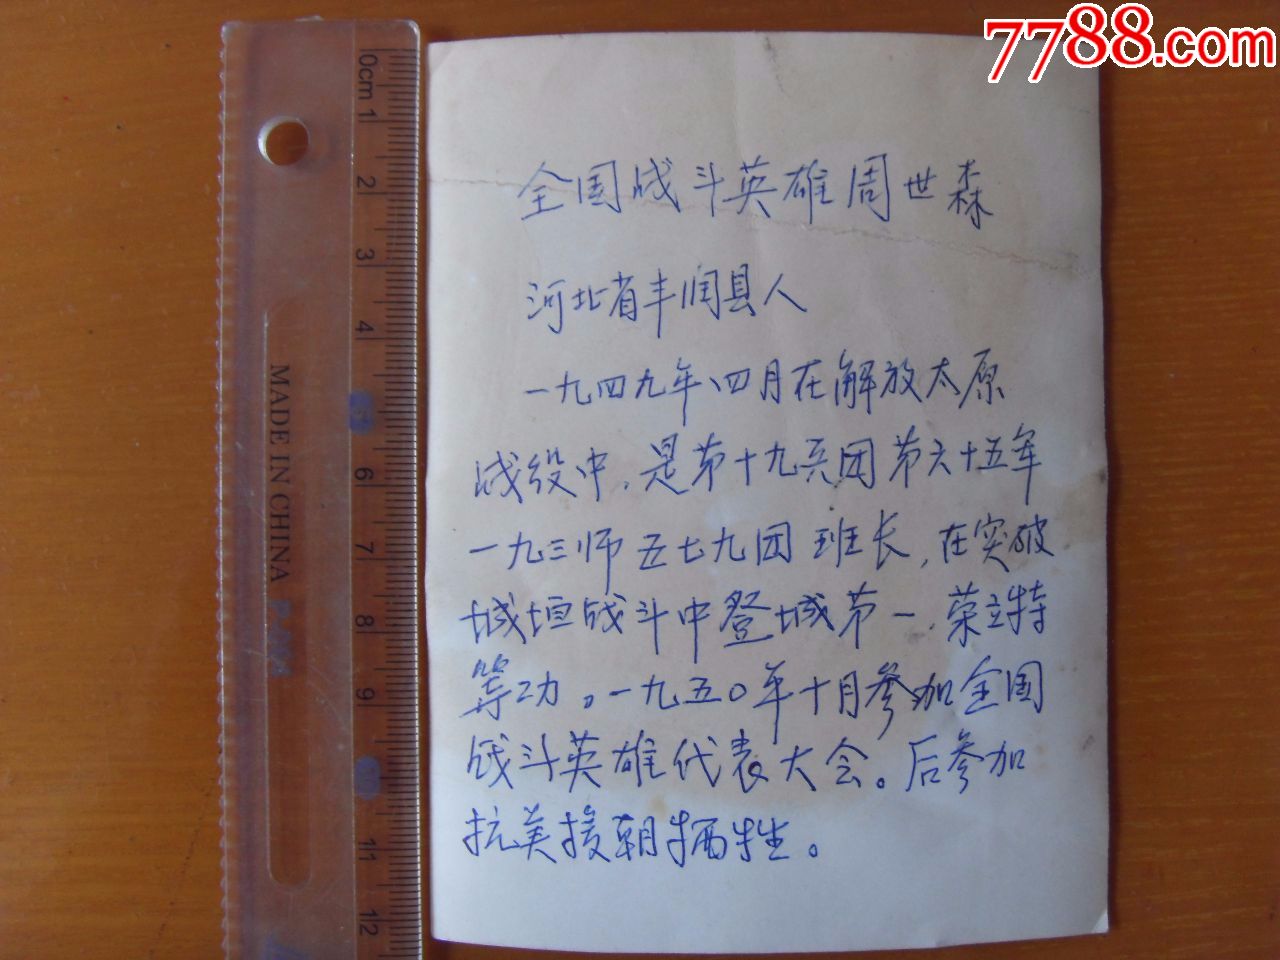 7788.com
全国战斗英雄周世森
河北省丰润县人
一九四九年、四月在解放太原
战役中，是第十九兵团第六十五军
一九三师五七九团班长，在突破
城垣战斗中登城第一，荣立特
等功。一九五〇年十月参加全国
战斗英雄代表大会。后参加
抗美援朝牺牲。
0cm 1 2 3 4 6 7 8 9 11 12
MADE IN CHINA